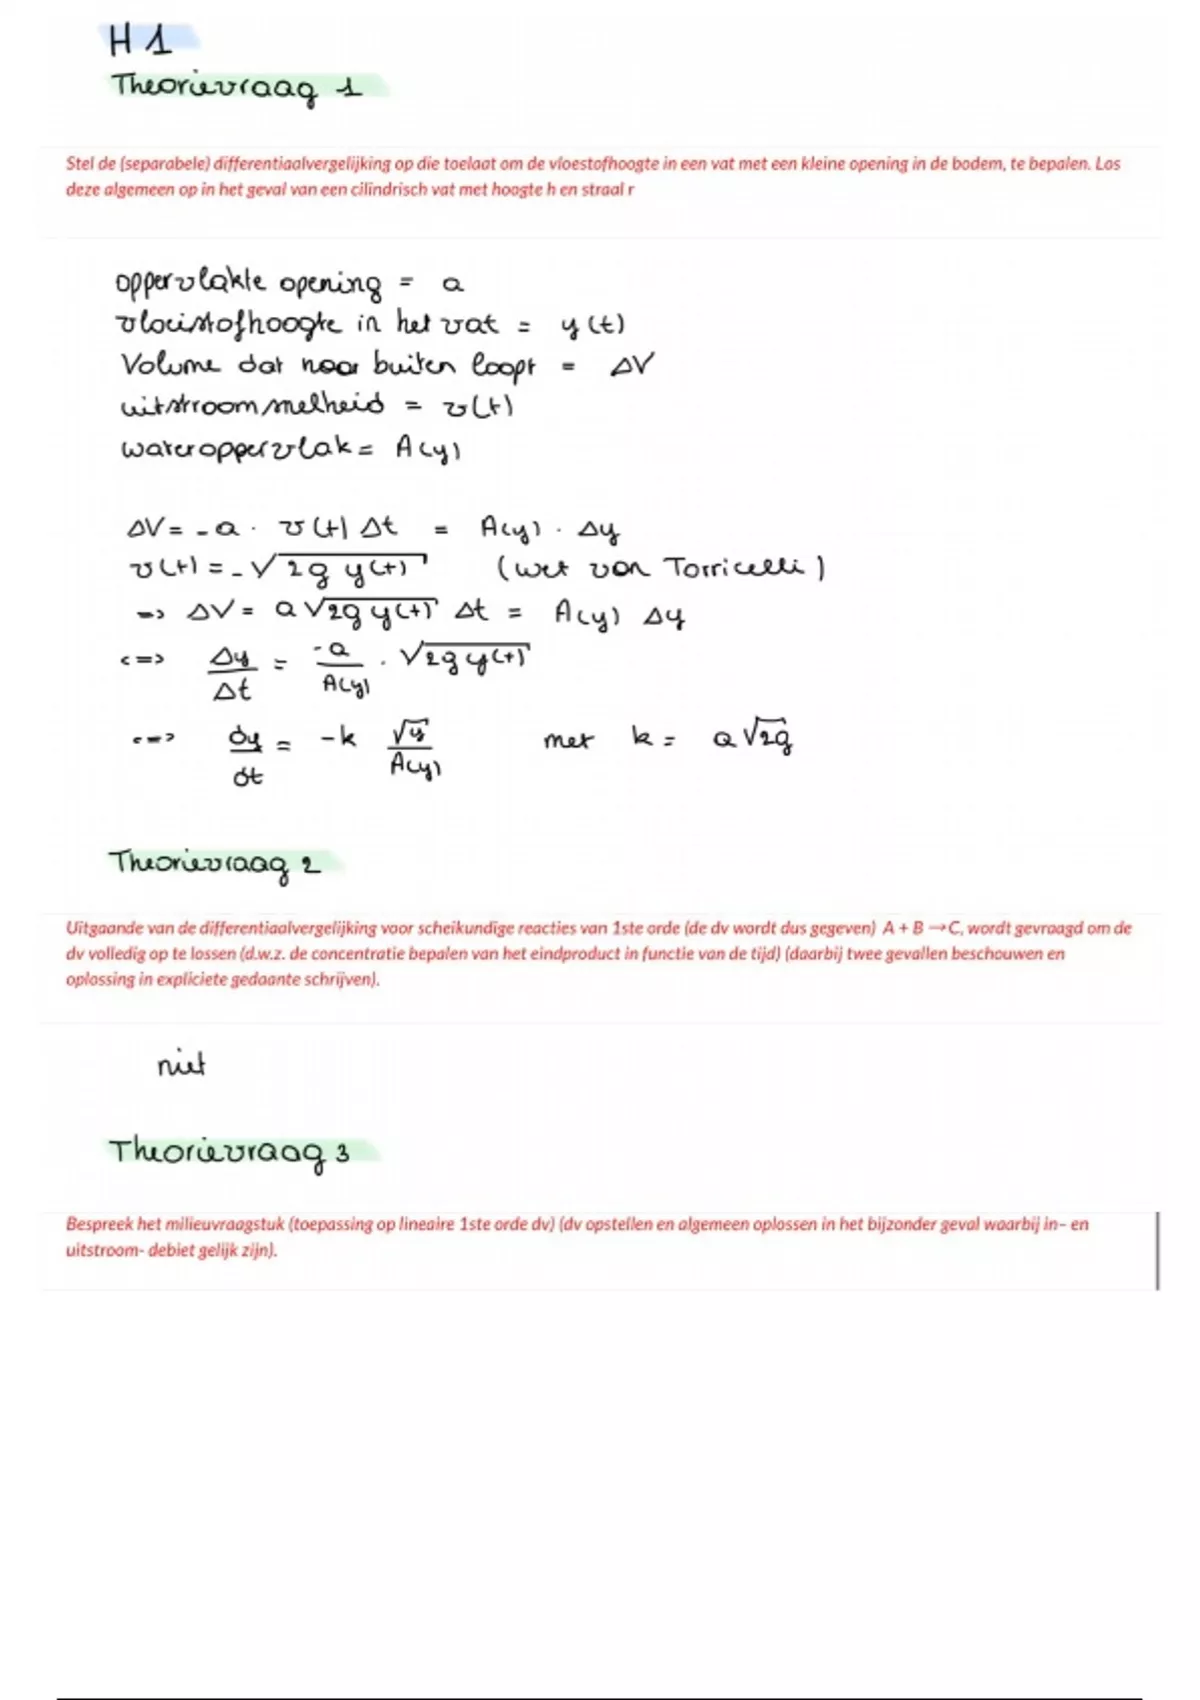 H 1
Theorievraag 1
Stel de (separabele) differentiaalvergelijking op die toelaat om de vloestofhoogte in een vat met een kleine opening in de bodem, te bepalen. Los
deze algemeen op in het geval van een cilindrisch vat met hoogte h en straal r
oppervlakte opening = a
vloeistofhoogte in het vat = y(t)
Volume dat naar buiten loopt = ΔV
uitstroomsnelheid = v(t)
wateroppervlak = A(y)
ΔV = -a · v(t) Δt = A(y) · Δy
v(t) = -√2g y(t) (wet van Torricelli)
=> ΔV = a √2g y(t) Δt = A(y) Δy
<=> Δy/Δt = -a/A(y) · √2g y(t)
<=> dy/dt = -k √y/A(y) met k = a√2g
Theorievraag 2
Uitgaande van de differentiaalvergelijking voor scheikundige reacties van 1ste orde (de dv wordt dus gegeven) A + B → C, wordt gevraagd om de
dv volledig op te lossen (d.w.z. de concentratie bepalen van het eindproduct in functie van de tijd) (daarbij twee gevallen beschouwen en
oplossing in expliciete gedaante schrijven).
niet
Theorievraag 3
Bespreek het milieuvraagstuk (toepassing op lineaire 1ste orde dv) (dv opstellen en algemeen oplossen in het bijzonder geval waarbij in– en
uitstroom- debiet gelijk zijn).